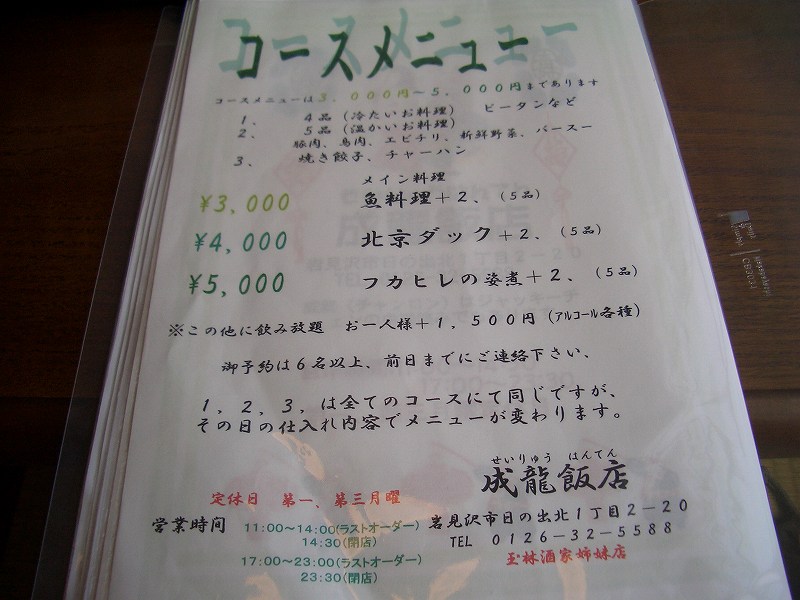 コースメニュー
コースメニューは3,000円~5,000円まであります
1、 4品(冷たいお料理) ピータンなど
2、 5品(温かいお料理)
豚肉、鳥肉、エビチリ、新鮮野菜、バースー
3、 焼き餃子、チャーハン
メイン料理
¥3,000 魚料理+2、(5品)
¥4,000 北京ダック+2、(5品)
¥5,000 フカヒレの姿煮+2、(5品)
※この他に飲み放題 お一人様+1,500円(アルコール各種)
御予約は6名以上、前日までにご連絡下さい、
1,2,3,は全てのコースにて同じですが、
その日の仕入れ内容でメニューが変わります。
せいりゅう はんてん
成龍飯店
定休日 第一、第三月曜
営業時間 11:00~14:00(ラストオーダー)
14:30(閉店)
17:00~23:00(ラストオーダー)
23:30(閉店)
岩見沢市日の出北1丁目2-20
TEL 0126-32-5588
玉林酒家姉妹店